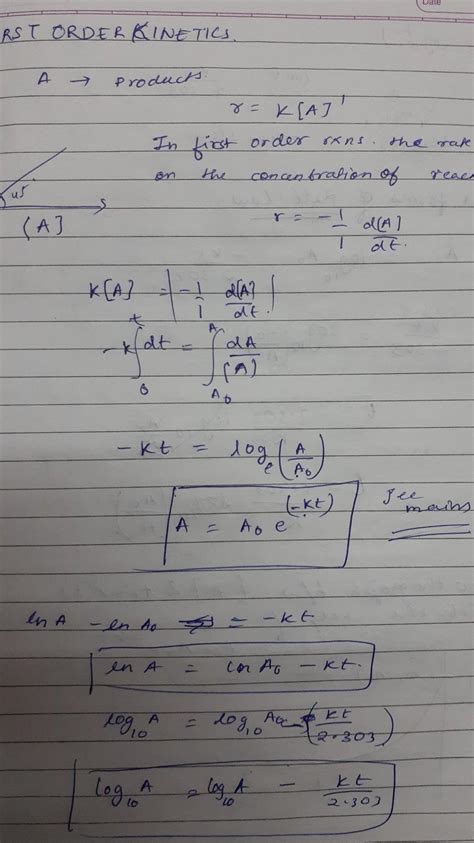 Date
RST ORDER KINETICS.
A → Products.
r = K[A]¹
In first order rxns. the rate
on the concentration of reac
45°
[A]
r = -1/1 d[A]/dt.
K[A] = |-1/1 d[A]/dt.|
-k ∫₀ᵗ dt = ∫_A₀^A dA/[A]
-kt = logₑ(A/A₀)
A = A₀ e^(-kt)
Jee mains
ln A - ln A₀ = -kt
ln A = ln A₀ - kt.
log₁₀ A = log₁₀ A₀ - (kt/2.303)
log₁₀ A = log₁₀ A - kt/2.303